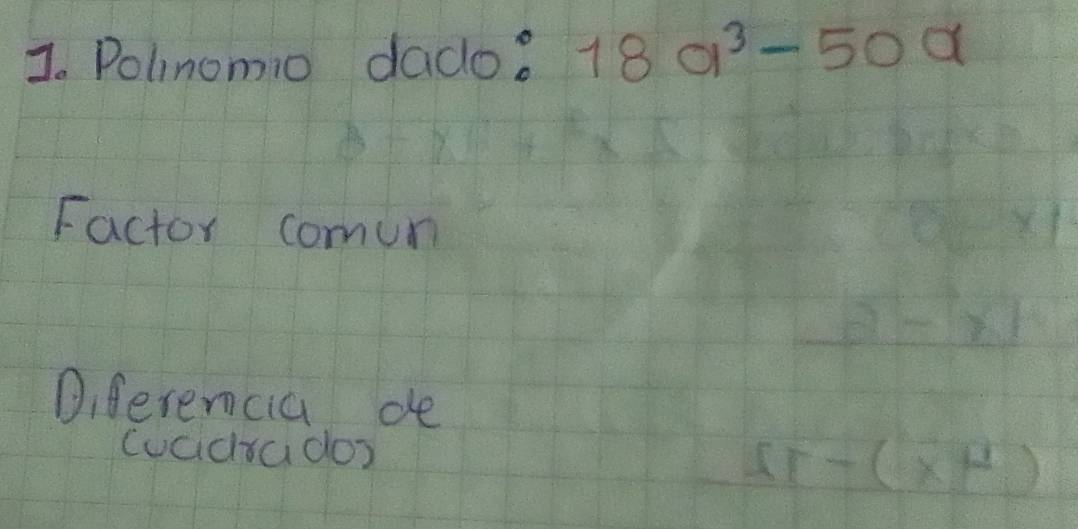 1. Polinomio dado: 18a³ - 50a
Factor comun
Diferencia de
cuadrados